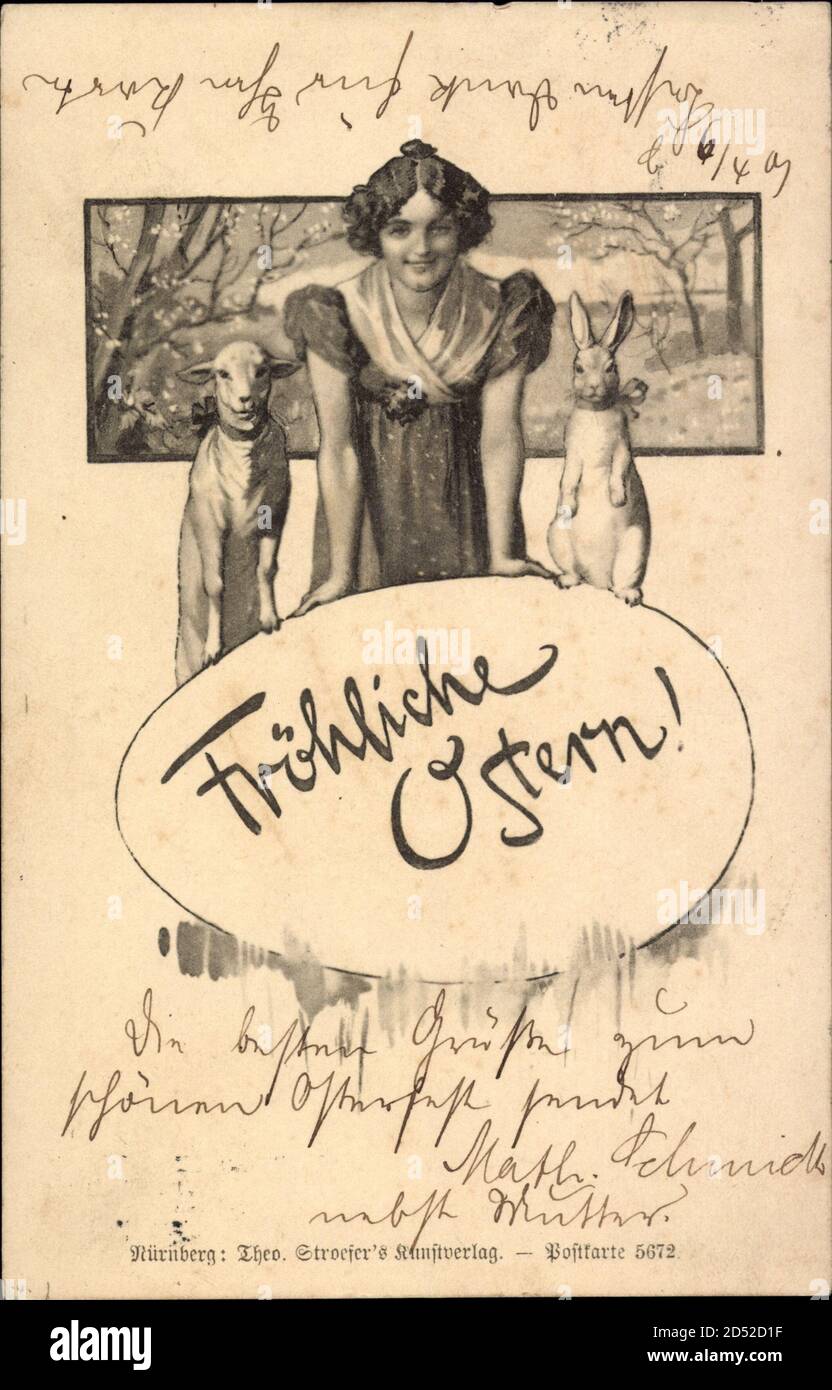 Besten Dank für Ihre Karte
4/4 01
Fröhliche
Ostern!
Die besten Grüße zum
schönen Osterfest sendet
Math. Schmidt
nebst Mutter.
Nürnberg: Theo. Stroefer's Kunstverlag. — Postkarte 5672.
alamy
Image ID: 2D52D1F
www.alamy.com